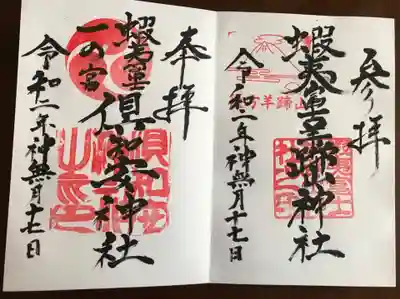 参拝
蝦夷富士羊蹄神社
令和二年神無月十七日
奉拝
蝦夷富士倶知安神社
一の宮
令和二年神無月十七日